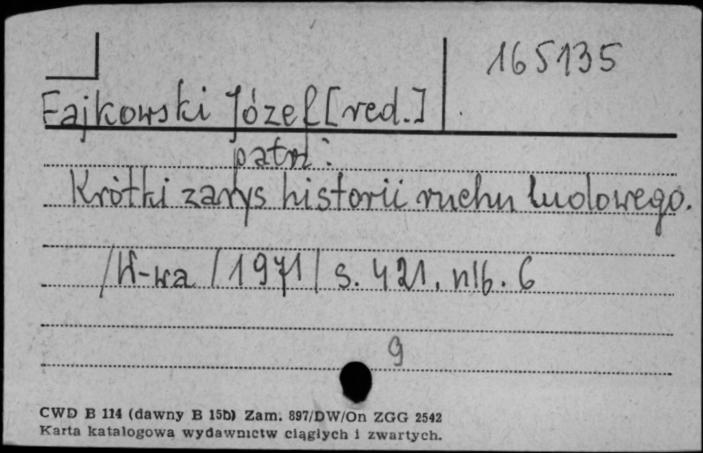 165135
Fajkowski Józef [red.]
patrz:
Krótki zarys historii ruchu ludowego.
/W-wa /1971/ s. 421, nlb. 6
9
CWD B 114 (dawny B 15b) Zam. 897/DW/On ZGG 2542
Karta katalogowa wydawnictw ciągłych i zwartych.